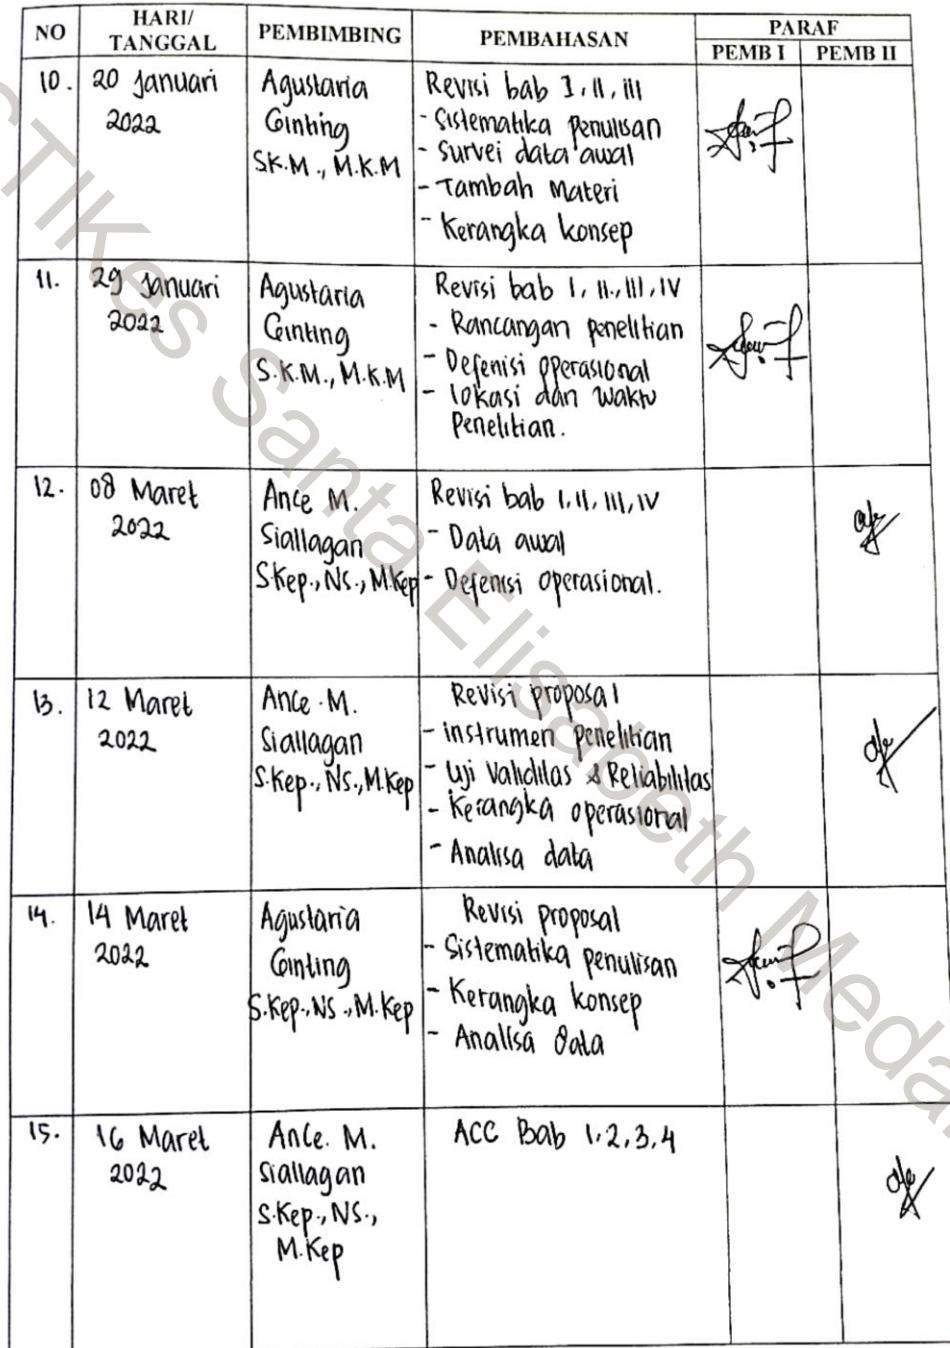 NO HARI/ TANGGAL PEMBIMBING PEMBAHASAN PARAF
PEMB I PEMB II
10. 20 Januari 2022
Agustaria
Ginting
SK.M., M.K.M
Revisi bab I, II, III
- Sistematika penulisan
- Survei data awal
- Tambah Materi
- Kerangka konsep
11. 29 Januari 2022
Agustaria
Ginting
S.K.M., M.K.M
Revisi bab I, II, III, IV
- Rancangan penelitian
- Defenisi operasional
- lokasi dan waktu
Penelitian.
12. 08 Maret 2022
Ance M.
Siallagan
S.Kep., NS., M.Kep
Revisi bab I, II, III, IV
- Data awal
- Defenisi operasional.
13. 12 Maret 2022
Ance. M.
Siallagan
S.Kep., NS., M.Kep
Revisi proposal
- instrumen penelitian
- Uji Validitas & Reliabilitas
- Kerangka operasional
- Analisa data
14. 14 Maret 2022
Agustaria
Ginting
S.Kep., NS., M.Kep
Revisi proposal
- Sistematika penulisan
- Kerangka konsep
- Analisa data
15. 16 Maret 2022
Ance. M.
Siallagan
S.Kep., NS.,
M.Kep
ACC Bab 1, 2, 3, 4
STIKes Santa Elisabeth Medan